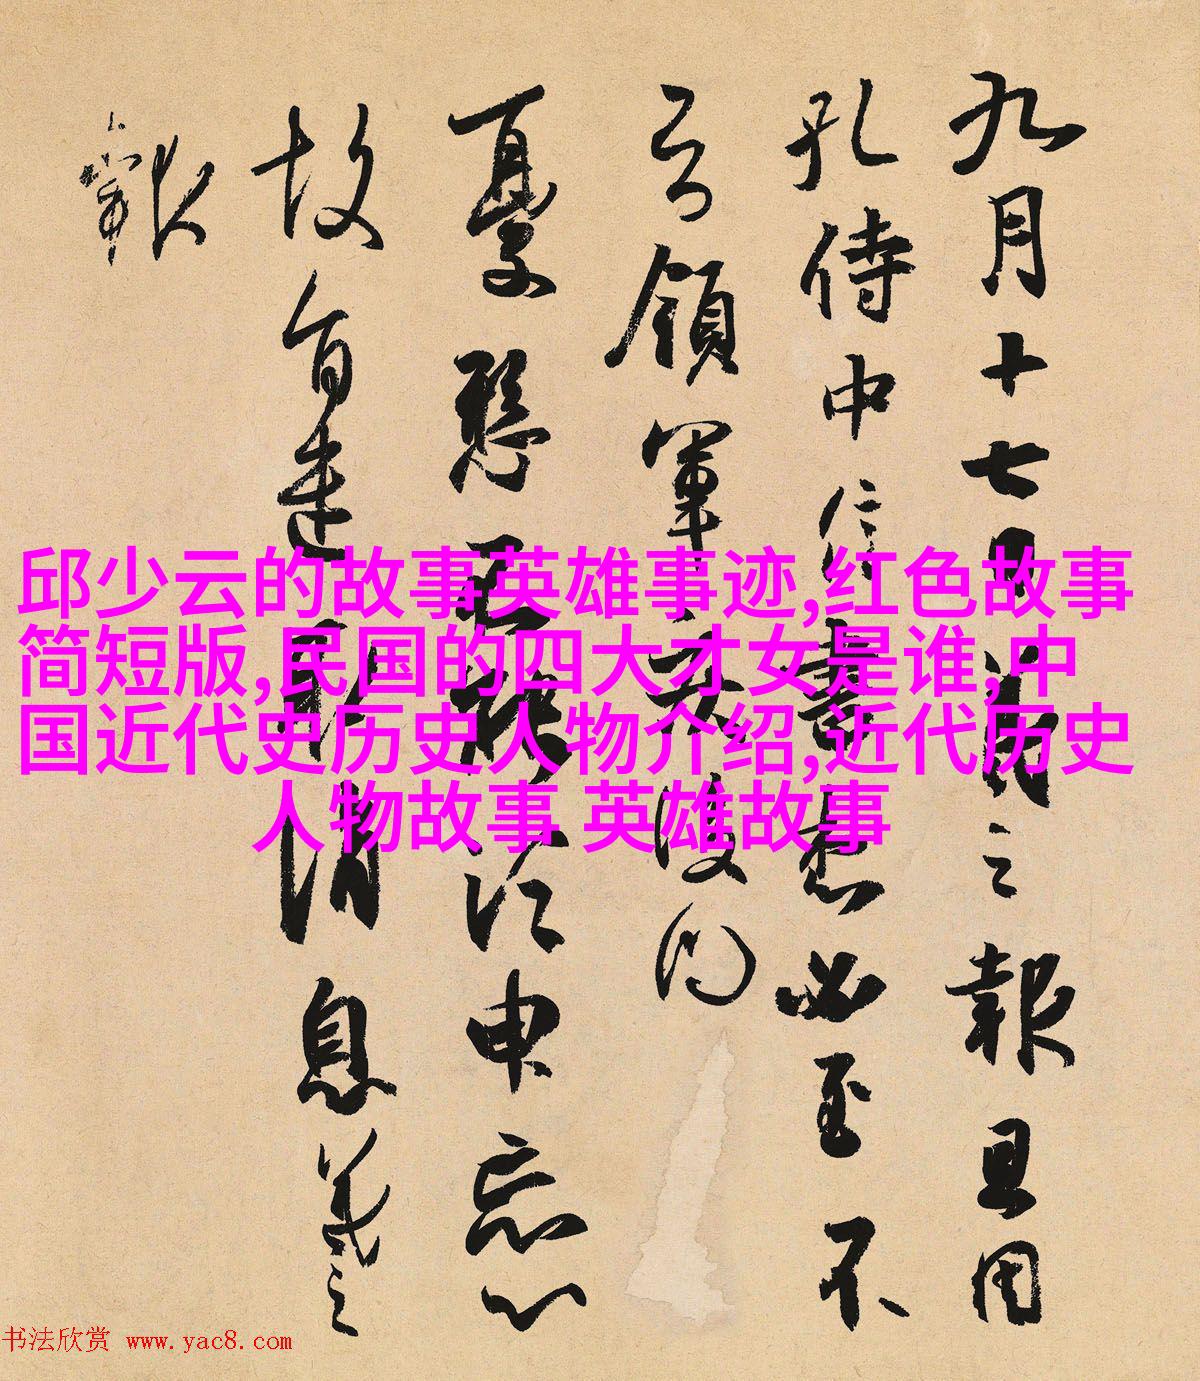 邱少云的故事英雄事迹,红色故事
简短版,民国的四大才女是谁,中
国近代史历史人物介绍,近代历史
人物故事 英雄故事
九月十七日羲之報且用
孔侍中信書想必至不
云領軍疾後問
憂懸不能須申忘心
故旨遣取消息羲之
報
书法欣赏 www.yac8.com